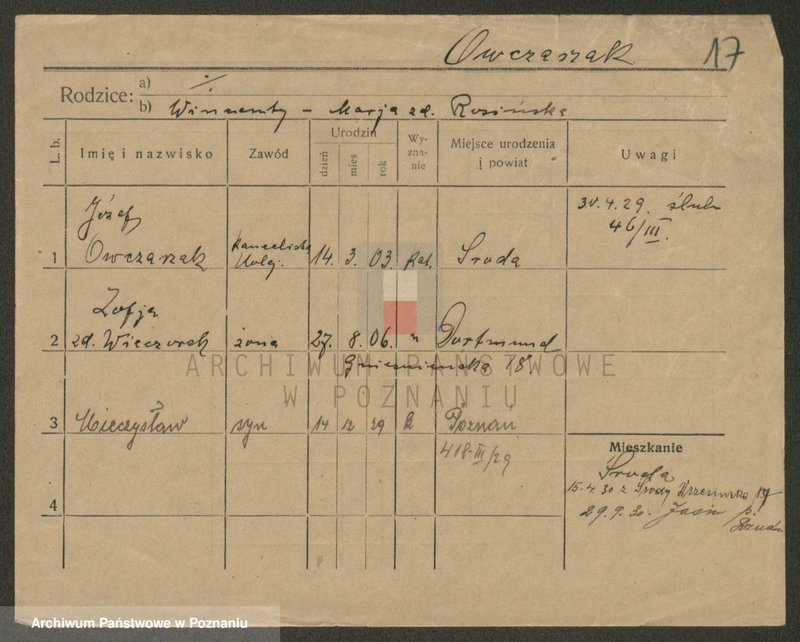 Owczarzak 17
Rodzice: a) ·/·
b) Wincenty – Marja zd. Rosińska
L. b. Imię i nazwisko Zawód Urodzin dzień mies rok Wy-zna-nie Miejsce urodzenia i powiat Uwagi
Józef 30.4.29. ślub
46/III.
1 Owczarzak kancelista kolej. 14. 3. 03. kat. Środa
Zofja
2 zd. Wieczorek żona 27. 8. 06. " Dortmund
Gnieźnieńska 18.
3 Mieczysław syn 14 12 29 k Poznań
418-III/29
Mieszkanie
Środa
15.4.30 z Środy
4
29.9.30. p.
ARCHIWUM PAŃSTWOWE
W POZNANIU
Archiwum Państwowe w Poznaniu